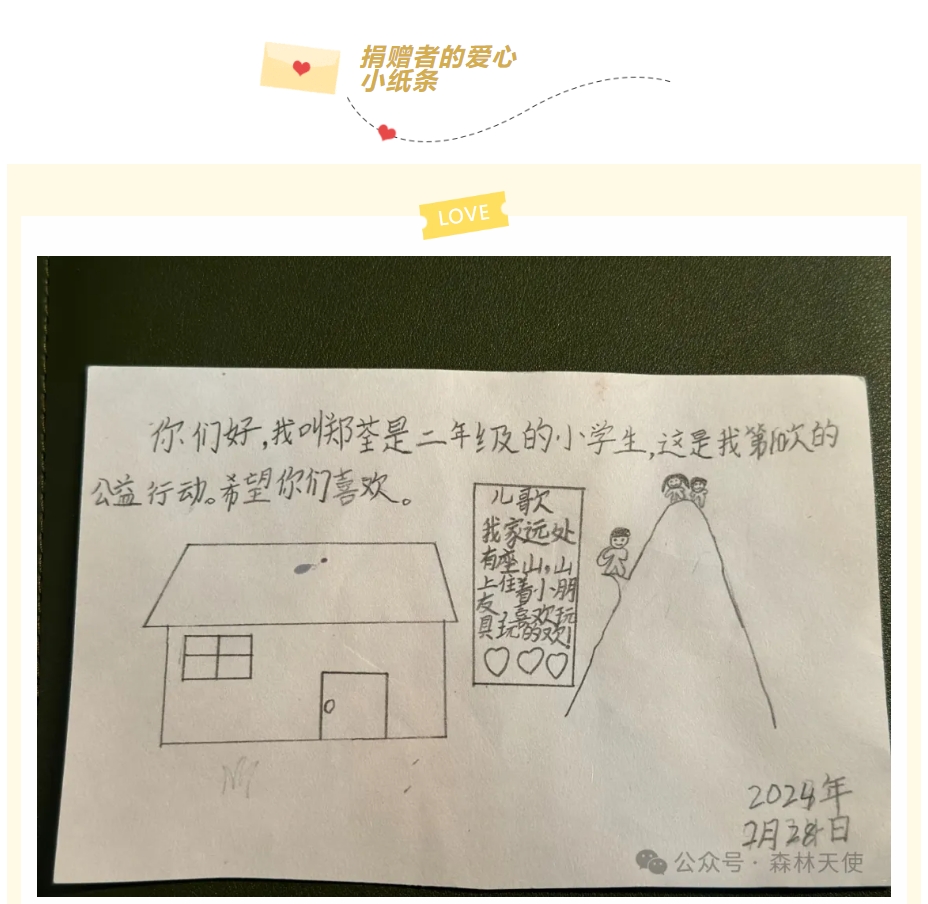 捐赠者的爱心
小纸条
LOVE
你们好,我叫郑荃是二年级的小学生,这是我第10次的
公益行动。希望你们喜欢。
儿歌
我家远处
有座山,山
上住着小朋
友,喜欢玩
具玩的欢!
2024年
2月28日
公众号·森林天使